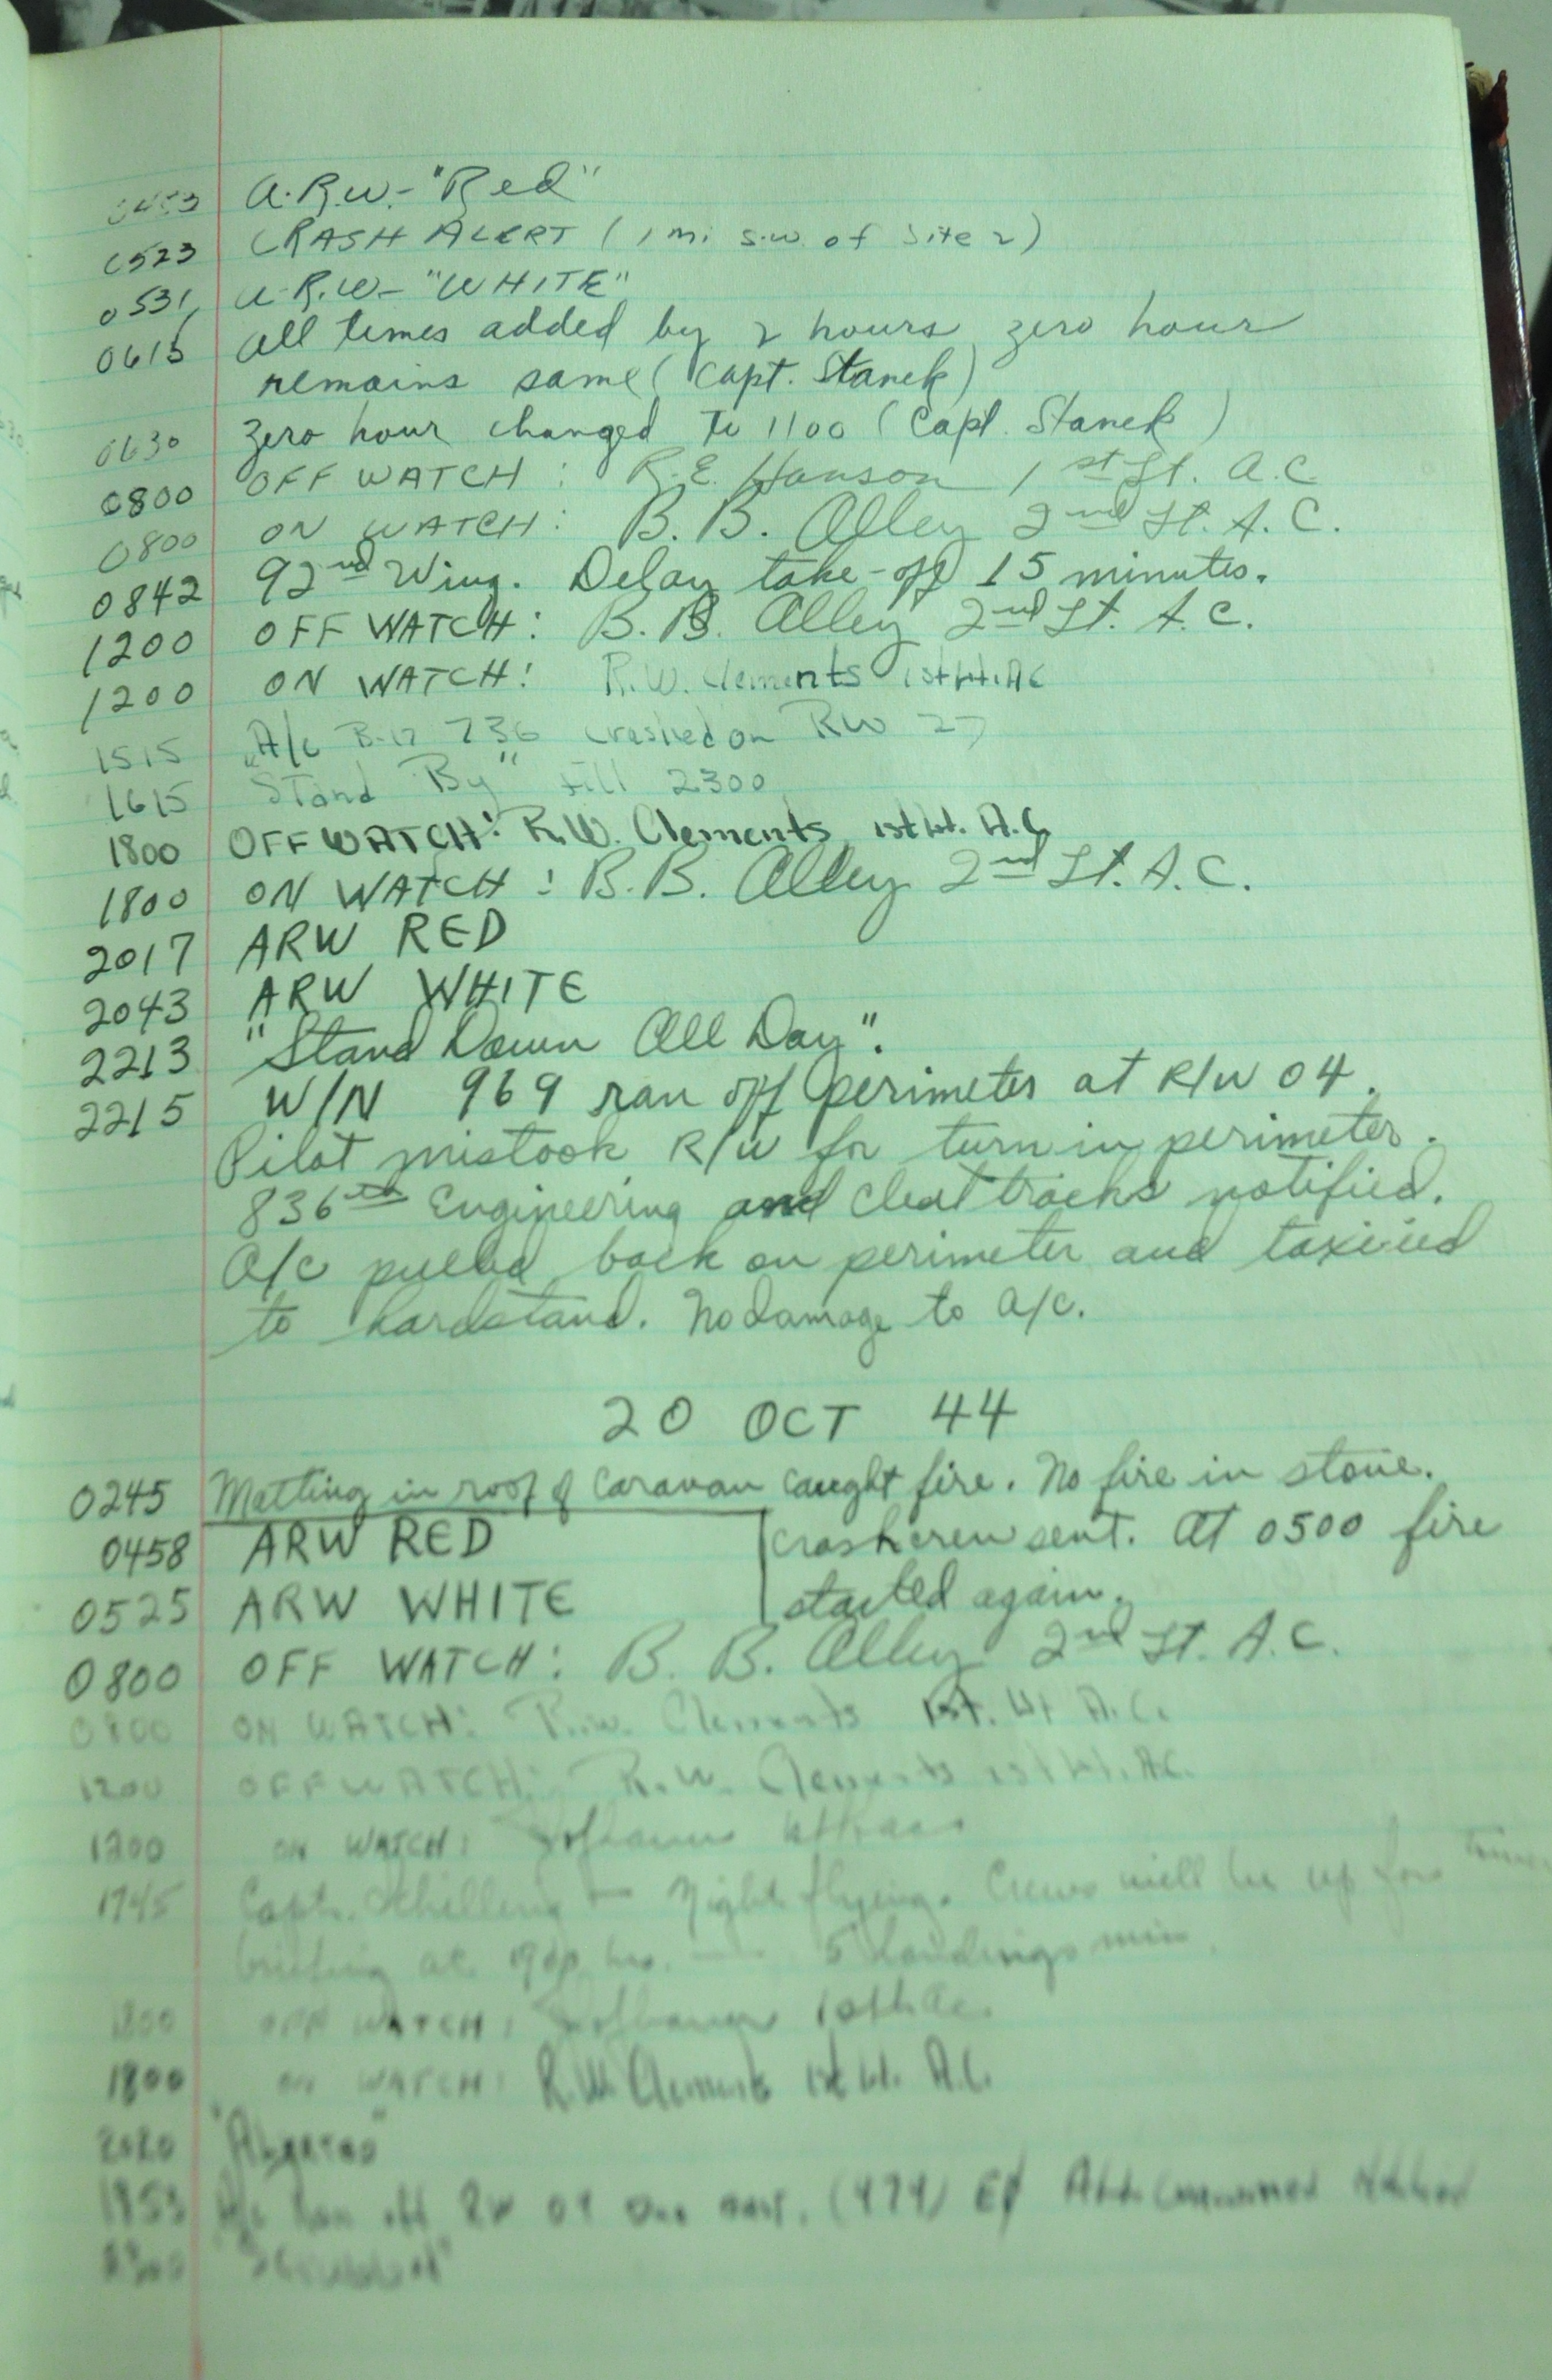 A.R.W.- "Red"
0523 CRASH ALERT (1 mi s.w. of Site 2)
0531 A.R.W- "WHITE"
0615 all times added by 2 hours zero hour
remains same (Capt. Stanek)
0630 Zero hour changed to 1100 (Capt. Stanek)
0800 OFF WATCH: R.E. Hanson 1st Lt. A.C.
0800 ON WATCH: B. B. Alley 2nd Lt. A. C.
0842 92nd Wing. Delay take-off 15 minutes.
1200 OFF WATCH: B. B. Alley 2nd Lt. A. C.
1200 ON WATCH: R.W. Clements 1st Lt. AC
1515 A/C B-17 736 crashed on RW 27
1615 "Stand By" till 2300
1800 OFF WATCH: R.W. Clements 1st Lt. A.C.
1800 ON WATCH: B. B. Alley 2nd Lt. A. C.
2017 ARW RED
2043 ARW WHITE
2213 "Stand Down All Day".
2215 W/N 969 ran off perimeter at R/W 04.
Pilot mistook R/W for turn in perimeter.
836th Engineering and Cleattracks notified.
A/C pulled back on perimeter and taxiied
to hardstand. No damage to A/C.
20 OCT 44
0245 Matting in roof of Caravan caught fire. No fire in stove.
0458 ARW RED Crash crew sent. At 0500 fire
0525 ARW WHITE started again.
0800 OFF WATCH: B. B. Alley 2nd Lt. A. C.
0800 ON WATCH: R.W. Clements 1st. Lt A.C.
1200 OFF WATCH: R.W. Clements 1st Lt. A.C.
1200 ON WATCH:
1745 Capt. Schilling - Night flying. Crews will be up for
briefing at 1900 hrs. - 5 landings min.
1800 OFF WATCH:
1800 ON WATCH: R.W. Clements 1st Lt. A.C.
2020
1853 A/C ran off RW 09 (474)